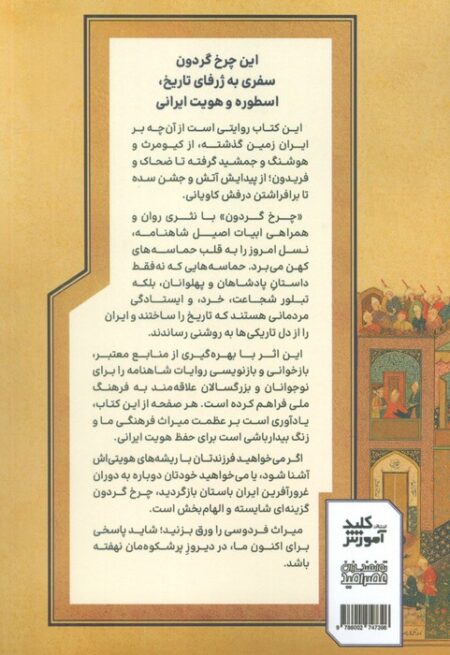 این چرخ گردون
سفری به ژرفای تاریخ،
اسطوره و هویت ایرانی
این کتاب روایتی است از آن‌چه بر
ایران زمین گذشته، از کیومرث و
هوشنگ و جمشید گرفته تا ضحاک و
فریدون؛ از پیدایش آتش و جشن سده
تا برافراشتن درفش کاویانی.
«چرخ گردون» با نثری روان و
همراهی ابیات اصیل شاهنامه،
نسل امروز را به قلب حماسه‌های
کهن می‌برد. حماسه‌هایی که نه‌فقط
داستانِ پادشاهان و پهلوانان، بلکه
تبلور شجاعت، خرد، و ایستادگی
مردمانی هستند که تاریخ را ساختند و ایران
را از دل تاریکی‌ها به روشنی رساندند.
این اثر با بهره‌گیری از منابع معتبر،
بازخوانی و بازنویسی روایات شاهنامه را برای
نوجوانان و بزرگسالان علاقه‌مند به فرهنگ
ملی فراهم کرده است. هر صفحه از این کتاب،
یادآوری است بر عظمت میراث فرهنگی ما و
زنگ بیدارباشی است برای حفظ هویت ایرانی.
اگر می‌خواهید فرزندتان با ریشه‌های هویتی‌اش
آشنا شود، یا می‌خواهید خودتان دوباره به دوران
غرورآفرین ایران باستان بازگردید، چرخ گردون
گزینه‌ای شایسته و الهام‌بخش است.
میراث فردوسی را ورق بزنید؛ شاید پاسخی
برای اکنون ما، در دیروز پرشکوه‌مان نهفته
باشد.
کلید
آموزش
9 786002 747396